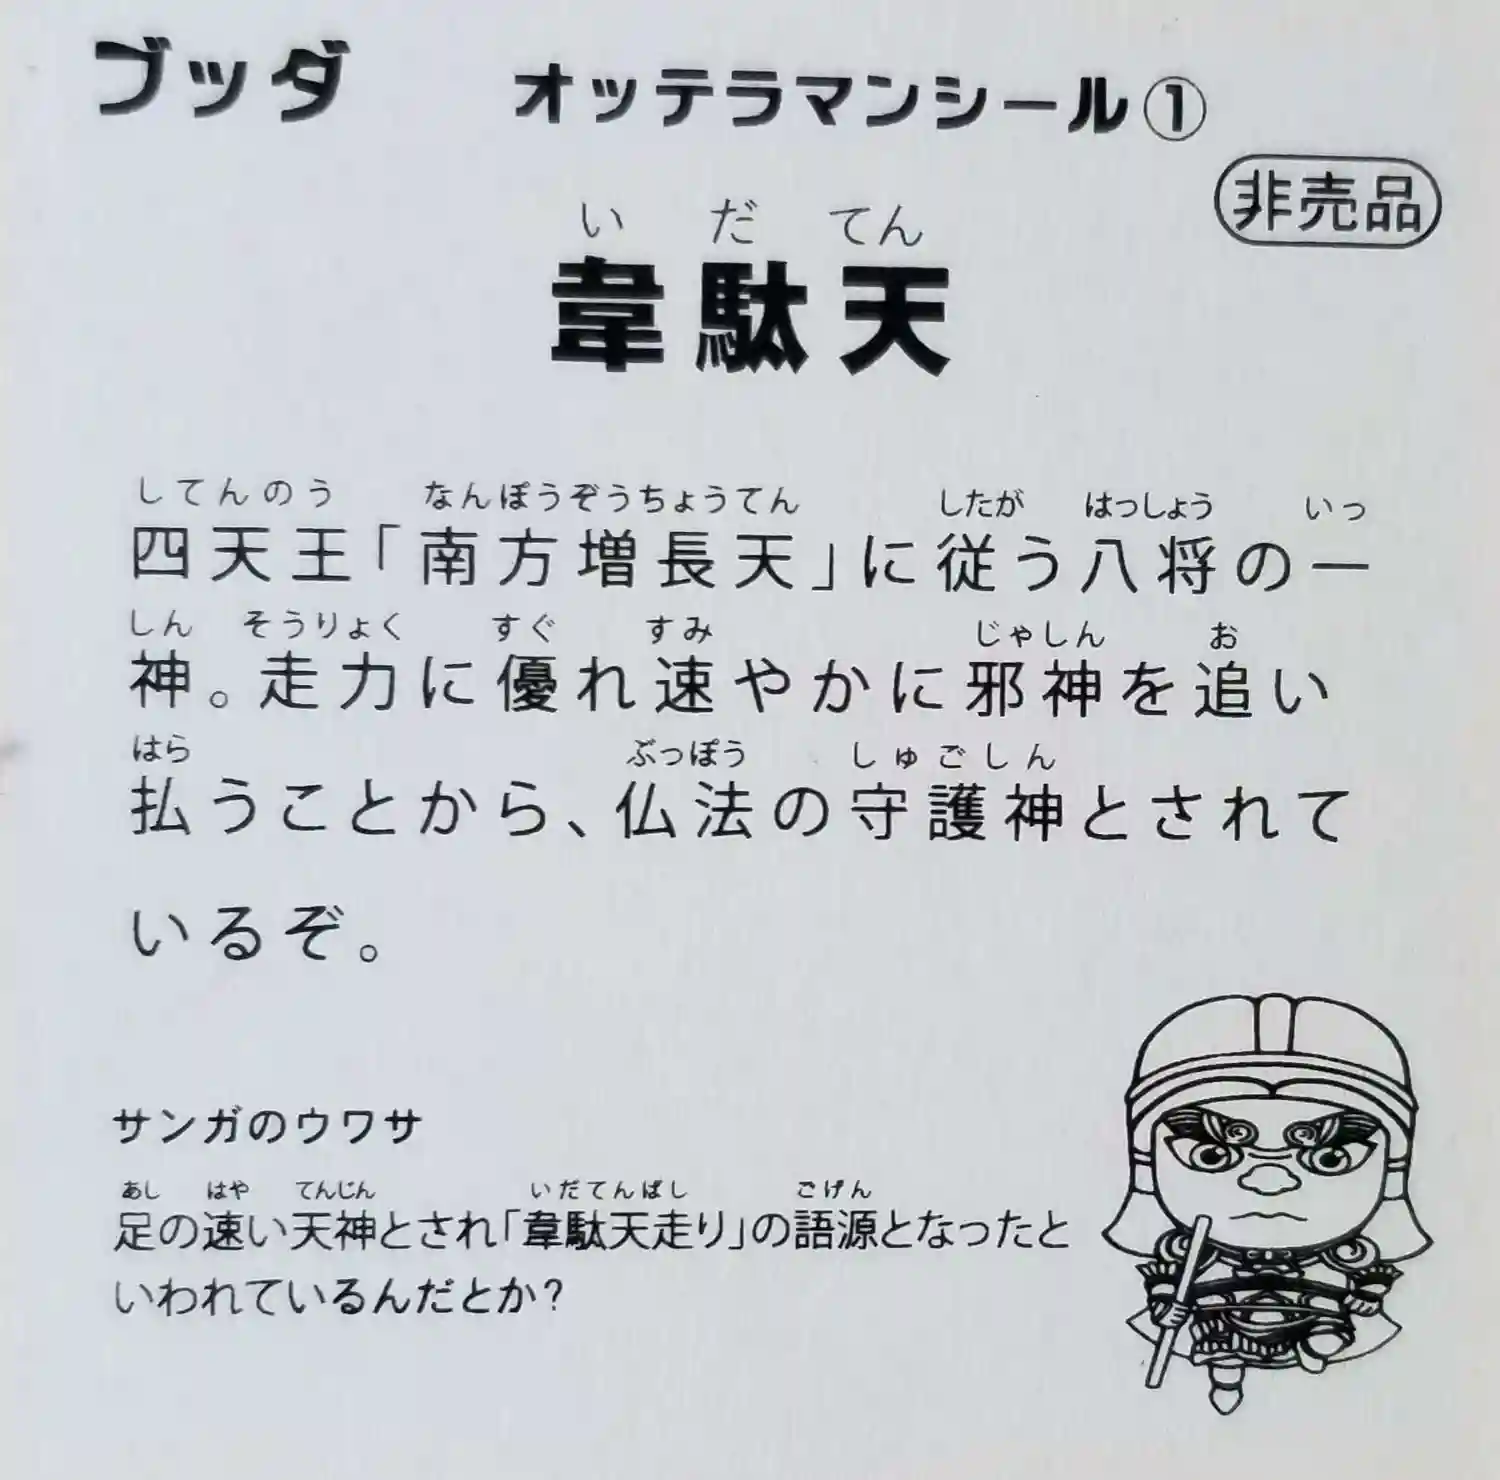 ブッダ オッテラマンシール①
非売品
いだてん
韋駄天
してんのう なんぽうぞうちょうてん したが はっしょう いっ
四天王「南方増長天」に従う八将の一
しん そうりょく すぐ すみ じゃしん お
神。走力に優れ速やかに邪神を追い
はら ぶっぽう しゅごしん
払うことから、仏法の守護神とされて
いるぞ。
サンガのウワサ
あし はや てんじん いだてんばし ごげん
足の速い天神とされ「韋駄天走り」の語源となったと
いわれているんだとか?